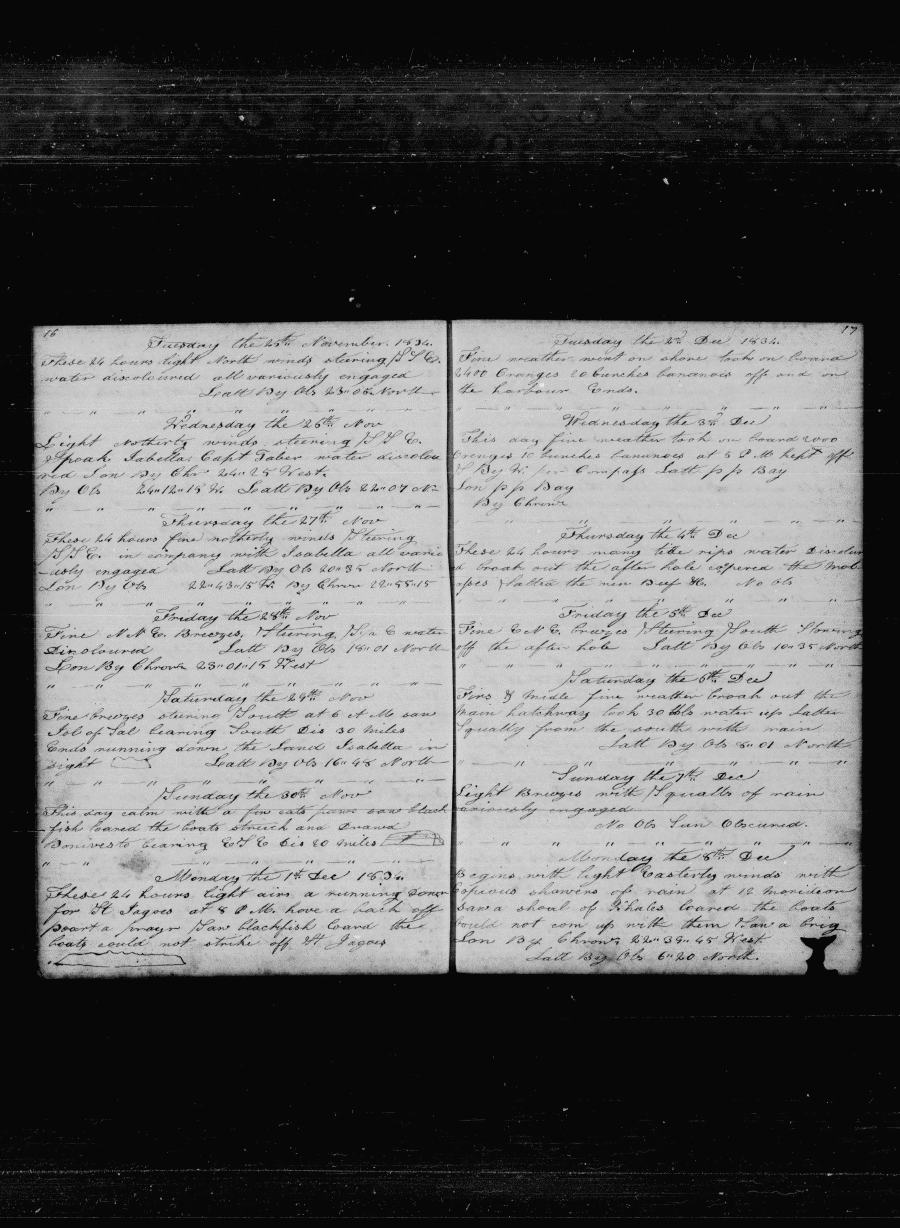 16
Tuesday the 25th November 1834.
These 24 hours light North winds steering S S E.
water discoloured all variously engaged
Latt By Obs 23"08 North
Wednesday the 26th Nov
Light Notherly winds steering S S E.
Spoak Isabella Capt Taber water discolou
red Lon By Chr 24"25 West.
By Obs 24"12"15 W. Latt By Obs 22"07 N
Thursday the 27th Nov
These 24 hours fine notherly winds Steering
S S E. in company with Isabella all vario
-usly engaged Latt By Obs 20"35 North
Lon By Obs 22"43"15 W. By Chron 22"55"15
Friday the 28th Nov
Fine N N E. Breezes, Steering S E water
Discoloured Latt By Obs 18"01 North
Lon By Chron 23"01"15 West
Saturday the 29th Nov
Fine breezes steering South at 6 A M saw
Isl of Sal bearing South Dis 30 miles
Ends running down the Land Isabella in
sight Latt By Obs 16"48 North
Sunday the 30th Nov
This day calm with a few cats paws saw black
fish loared the boats struck and Drawd
Bonivesto bearing E S E Dis 20 miles
Monday the 1st Dec 1834
These 24 hours light airs a running Down
for St Jagoes at 8 P M. hove a back off
poart a prayr Saw blackfish loard the
boats could not strike off St Jagoes
17
Tuesday the 2d Dec 1834.
Fine weather went on shore took on board
2400 Oranges 20 bunches bananoes off and on
the harbour Ends.
Wednesday the 3d Dec
This day fine weather took on board 2000
Orenges 10 bunches bananoes at 5 P M kept off
S By W. per Compass Latt p p Bay
Lon p p Bay
By Chron
Thursday the 4th Dec
These 24 hours many tide rips water Discolur
d broak out the after hole coppered the mol
asses Salted the new Beef &c. No Obs
Friday the 5th Dec
Fine E N E breezes Steering South Stowing
off the after hole Latt By Obs 10"35 North
Saturday the 6th Dec
Firs & midle fine weather broak out the
main hatchway took 30 bbls water up Latter
Squally from the south with rain
Latt By Obs 8"01 North
Sunday the 7th Dec
Light Breezes with Squalls of rain
variously engaged
No Obs Sun Obscured.
Monday the 8th Dec
Begins with light Easterly winds with
Copious showers of rain at 12 meridian
saw a shoal of Whales loared the boats
could not com up with them Saw a brig
Lon By Chron 22"39"45 West
Latt By Obs 6"20 North.